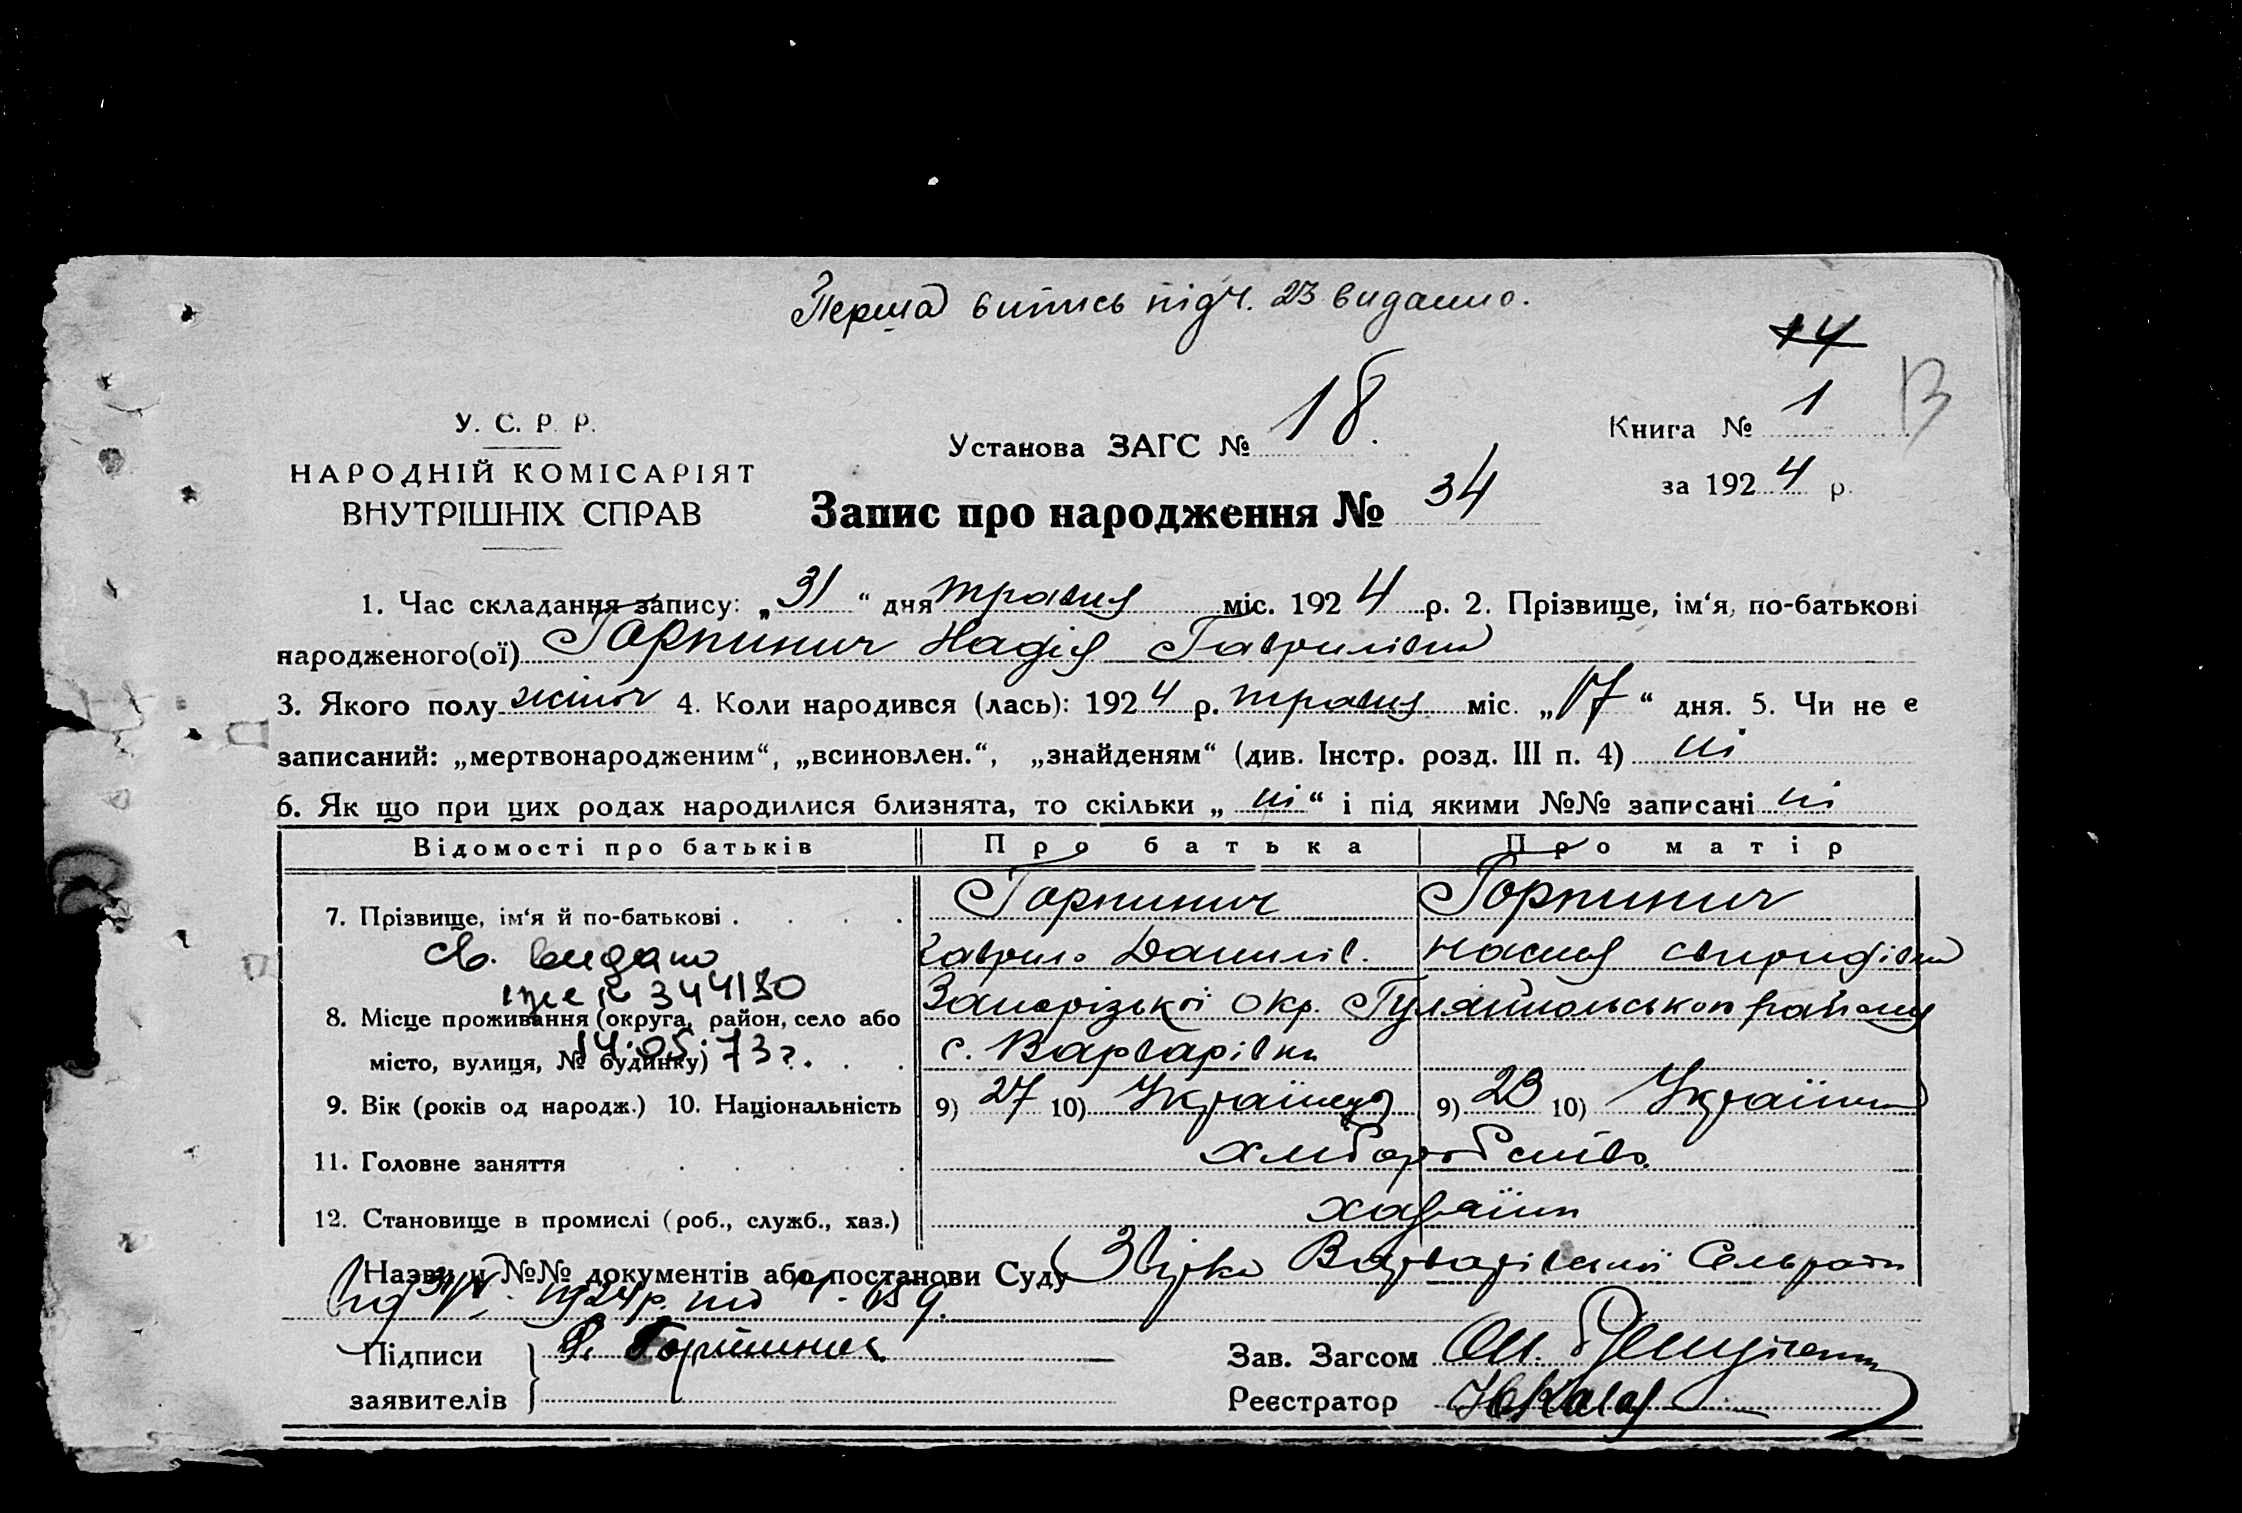 Перша випись під ч. 23 видано.
14
13
У. С. Р. Р.
Установа ЗАГС № 18.
Книга № 1
НАРОДНІЙ КОМІСАРІЯТ
ВНУТРІШНІХ СПРАВ
за 1924 р.
Запис про народження № 34
1. Час складання запису: „31“ дня травня міс. 1924 р. 2. Прізвище, ім‘я, по-батькові
народженого(ої) Горпинич Надія Гаврилівна
3. Якого полу жіноч 4. Коли народився (лась): 1924 р. травня міс. „17“ дня. 5. Чи не є
записаний: „мертвонародженим“, „всиновлен.“, „знайденям“ (див. Інстр. розд. III п. 4) ні
6. Як що при цих родах народилися близнята, то скільки „ні“ і під якими №№ записані ні
Відомості про батьків Про батька Про матір
7. Прізвище, ім‘я й по-батькові . Горпинич Горпинич
св. видано Гаврило Данилів. Настя Свиридівна
№ 344180
8. Місце проживання (округа, район, село або Запорізької Окр. Гуляйпольського району
місто, вулиця, № будинку) с. Варварівка
14.05.73г.
9. Вік (років од народж.) 10. Національність 9) 27 10) Українець 9) 23 10) Українка
11. Головне заняття хліборобство
12. Становище в промислі (роб., служб., хаз.) хазяїн
Назви й №№ документів або постанови Суду Варварівської Сельради
від 31/V 1924 р.
Підписи
заявителів
Горпинич
Зав. Загсом
Реєстратор